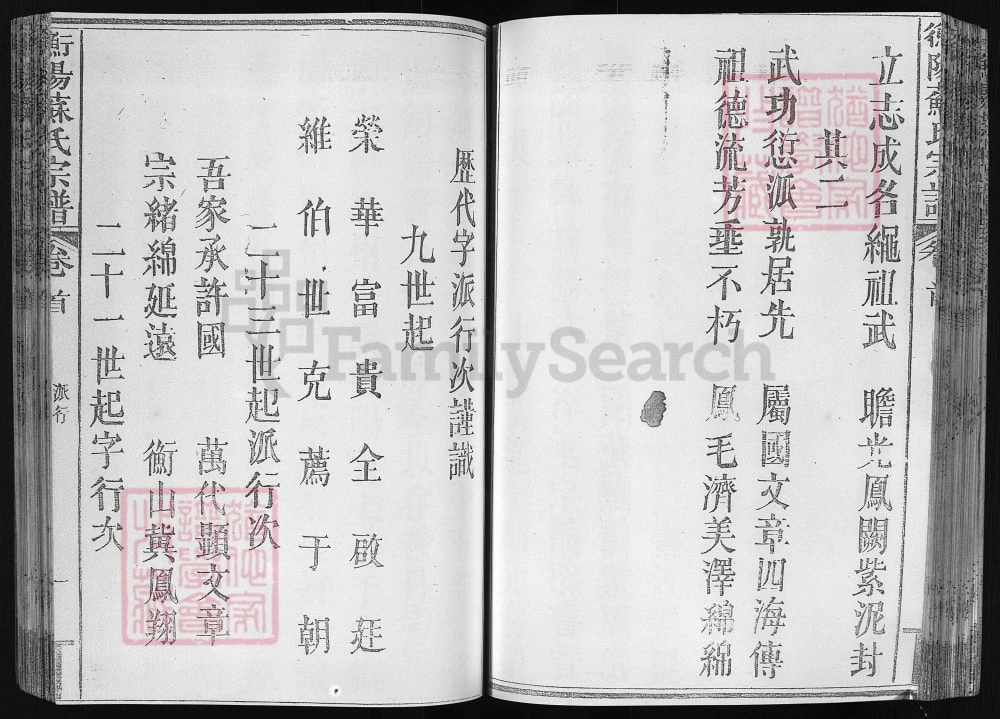 立志成名繩祖武 瞻光鳳闕紫泥封
其二
武功愆派孰居先 屬國文章四海傳
祖德流芳垂不朽 鳳毛濟美澤綿綿
歷代字派行次謹識
九世起
榮華富貴全啟廷
維伯世克薦于朝
二十三世起派行次
吾家承許國 萬代顯文章
宗緒綿延遠 衡山冀鳳翔
二十一世起字行次
衡陽蘇氏宗譜 卷首 派行 一
FamilySearch